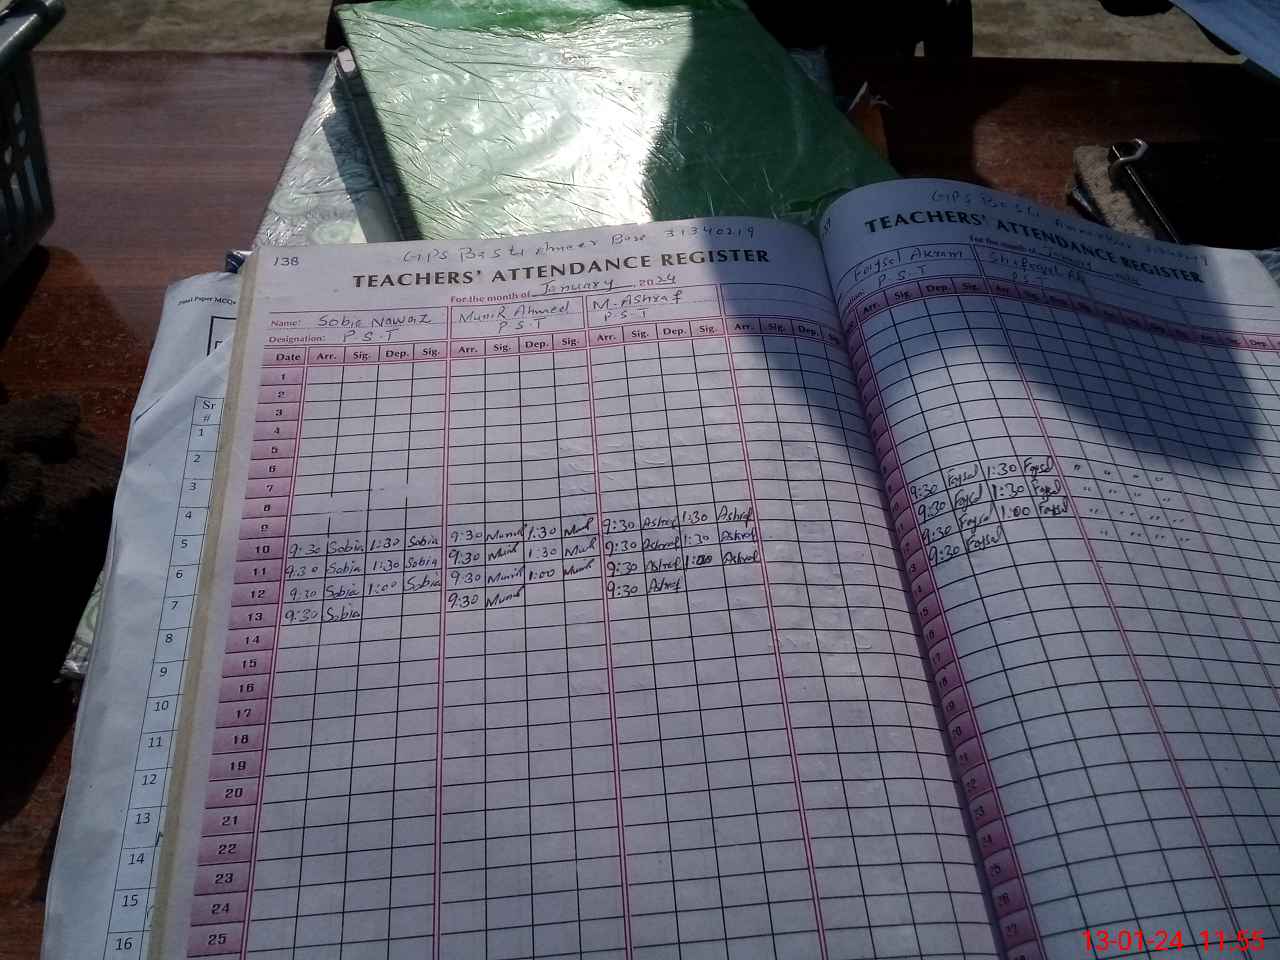 138
GPS Basti Ameer Bux 31340219
TEACHERS' ATTENDANCE REGISTER
For the month of January, 2024
Name: Sobia Nawaz Munir Ahmed M. Ashraf
Designation: P.S.T P.S.T P.S.T
Date Arr. Sig. Dep. Sig. Arr. Sig. Dep. Sig. Arr. Sig. Dep. Sig. Arr. Sig. Dep.
1
2
3
4
5
6
7
8
9
10 9:30 Sobia 1:30 Sobia 9:30 Munir 1:30 Munir 9:30 Ashraf 1:30 Ashraf
11 9:30 Sobia 1:30 Sobia 9:30 Munir 1:30 Munir 9:30 Ashraf 1:30 Ashraf
12 9:30 Sobia 1:00 Sobia 9:30 Munir 1:00 Munir 9:30 Ashraf 1:00 Ashraf
13 9:30 Sobia 9:30 Munir 9:30 Ashraf
14
15
16
17
18
19
20
21
22
23
24
25
GPS Basti
TEACHERS' ATTENDANCE REGISTER
For the month of January
Faysal Akram
P.S.T
Arr. Sig. Dep. Sig. Arr. Sig.
9:30 Faysal 1:30 Faysal " " " "
9:30 Faysal 1:30 Faysal " " " "
9:30 Faysal 1:00 Faysal " " " "
9:30 Faysal " " " "
15
16
17
18
19
20
21
22
23
24
25
26
27
Paper MCQs
Sr
#
1
2
3
4
5
6
7
8
9
10
11
12
13
14
15
16
13-01-24 11:55